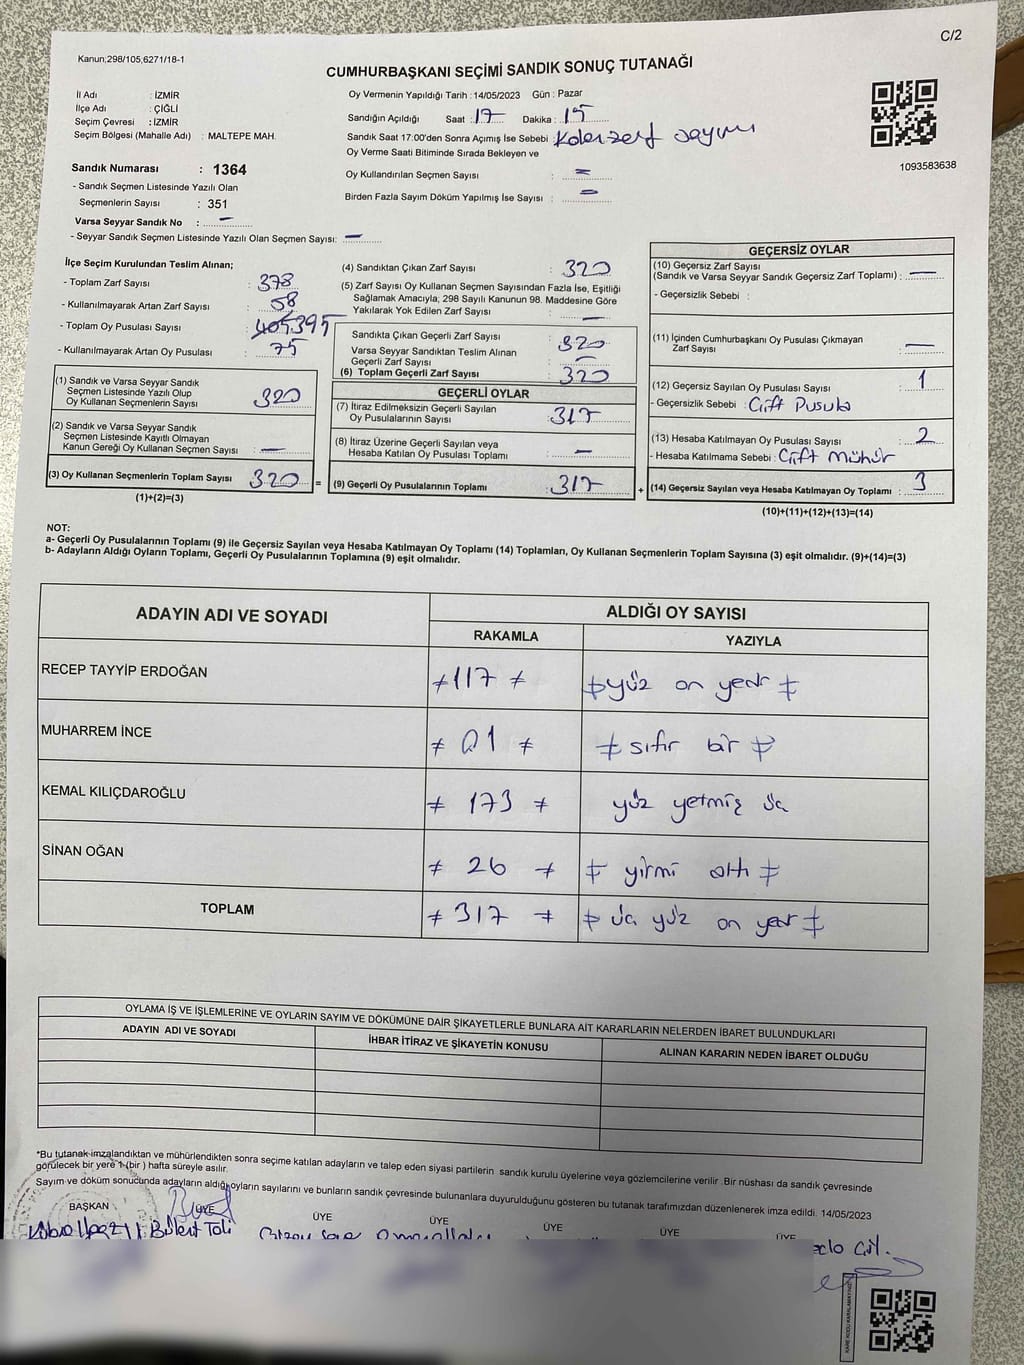 C/2
Kanun;298/105,6271/18-1
CUMHURBAŞKANI SEÇİMİ SANDIK SONUÇ TUTANAĞI
İl Adı : İZMİR
İlçe Adı : ÇİĞLİ
Seçim Çevresi : İZMİR
Seçim Bölgesi (Mahalle Adı) : MALTEPE MAH.
Sandık Numarası : 1364
- Sandık Seçmen Listesinde Yazılı Olan
Seçmenlerin Sayısı : 351
Varsa Seyyar Sandık No : –
- Seyyar Sandık Seçmen Listesinde Yazılı Olan Seçmen Sayısı: –
Oy Vermenin Yapıldığı Tarih : 14/05/2023 Gün : Pazar
Sandığın Açıldığı Saat : 17 Dakika : 15
Sandık Saat 17:00'den Sonra Açımış İse Sebebi : sayımı
Oy Verme Saati Bitiminde Sırada Bekleyen ve
Oy Kullandırılan Seçmen Sayısı : =
Birden Fazla Sayım Döküm Yapılmış İse Sayısı : =
1093583638
İlçe Seçim Kurulundan Teslim Alınan;
- Toplam Zarf Sayısı : 378
- Kullanılmayarak Artan Zarf Sayısı : 58
- Toplam Oy Pusulası Sayısı : 405 395
- Kullanılmayarak Artan Oy Pusulası : 75
(1) Sandık ve Varsa Seyyar Sandık
Seçmen Listesinde Yazılı Olup
Oy Kullanan Seçmenlerin Sayısı : 320
(2) Sandık ve Varsa Seyyar Sandık
Seçmen Listesinde Kayıtlı Olmayan
Kanun Gereği Oy Kullanan Seçmen Sayısı : –
(3) Oy Kullanan Seçmenlerin Toplam Sayısı : 320 =
(1)+(2)=(3)
(4) Sandıktan Çıkan Zarf Sayısı : 320
(5) Zarf Sayısı Oy Kullanan Seçmen Sayısından Fazla İse, Eşitliği
Sağlamak Amacıyla, 298 Sayılı Kanunun 98. Maddesine Göre
Yakılarak Yok Edilen Zarf Sayısı : –
Sandıkta Çıkan Geçerli Zarf Sayısı : 320
Varsa Seyyar Sandıktan Teslim Alınan
Geçerli Zarf Sayısı : –
(6) Toplam Geçerli Zarf Sayısı : 320
GEÇERLİ OYLAR
(7) İtiraz Edilmeksizin Geçerli Sayılan
Oy Pusulalarının Sayısı : 317
(8) İtiraz Üzerine Geçerli Sayılan veya
Hesaba Katılan Oy Pusulası Toplamı : –
(9) Geçerli Oy Pusulalarının Toplamı : 317 +
GEÇERSİZ OYLAR
(10) Geçersiz Zarf Sayısı
(Sandık ve Varsa Seyyar Sandık Geçersiz Zarf Toplamı) : –
- Geçersizlik Sebebi :
(11) İçinden Cumhurbaşkanı Oy Pusulası Çıkmayan
Zarf Sayısı : –
(12) Geçersiz Sayılan Oy Pusulası Sayısı : 1
- Geçersizlik Sebebi : Çift Pusula
(13) Hesaba Katılmayan Oy Pusulası Sayısı : 2
- Hesaba Katılmama Sebebi : Çift mühür
(14) Geçersiz Sayılan veya Hesaba Katılmayan Oy Toplamı : 3
(10)+(11)+(12)+(13)=(14)
NOT:
a- Geçerli Oy Pusulalarının Toplamı (9) ile Geçersiz Sayılan veya Hesaba Katılmayan Oy Toplamı (14) Toplamları, Oy Kullanan Seçmenlerin Toplam Sayısına (3) eşit olmalıdır. (9)+(14)=(3)
b- Adayların Aldığı Oyların Toplamı, Geçerli Oy Pusulalarının Toplamına (9) eşit olmalıdır.
ADAYIN ADI VE SOYADI ALDIĞI OY SAYISI
RAKAMLA YAZIYLA
RECEP TAYYİP ERDOĞAN ≠ 117 ≠ ≠ yüz on yedi ≠
MUHARREM İNCE ≠ 01 ≠ ≠ sıfır bir ≠
KEMAL KILIÇDAROĞLU ≠ 173 ≠ yüz yetmiş üç
SİNAN OĞAN ≠ 26 ≠ ≠ yirmi altı ≠
TOPLAM ≠ 317 ≠ ≠ üç yüz on yedi ≠
OYLAMA İŞ VE İŞLEMLERİNE VE OYLARIN SAYIM VE DÖKÜMÜNE DAİR ŞİKAYETLERLE BUNLARA AİT KARARLARIN NELERDEN İBARET BULUNDUKLARI
ADAYIN ADI VE SOYADI İHBAR İTİRAZ VE ŞİKAYETİN KONUSU ALINAN KARARIN NEDEN İBARET OLDUĞU
*Bu tutanak imzalandıktan ve mühürlendikten sonra seçime katılan adayların ve talep eden siyasi partilerin sandık kurulu üyelerine veya gözlemcilerine verilir .Bir nüshası da sandık çevresinde
görülecek bir yere 1 (bir ) hafta süreyle asılır.
Sayım ve döküm sonucunda adayların aldığı oyların sayılarını ve bunların sandık çevresinde bulunanlara duyurulduğunu gösteren bu tutanak tarafımızdan düzenlenerek imza edildi. 14/05/2023
BAŞKAN ÜYE ÜYE ÜYE ÜYE ÜYE ÜYE
Bülent
KARE KODU KARALAMAYINIZ